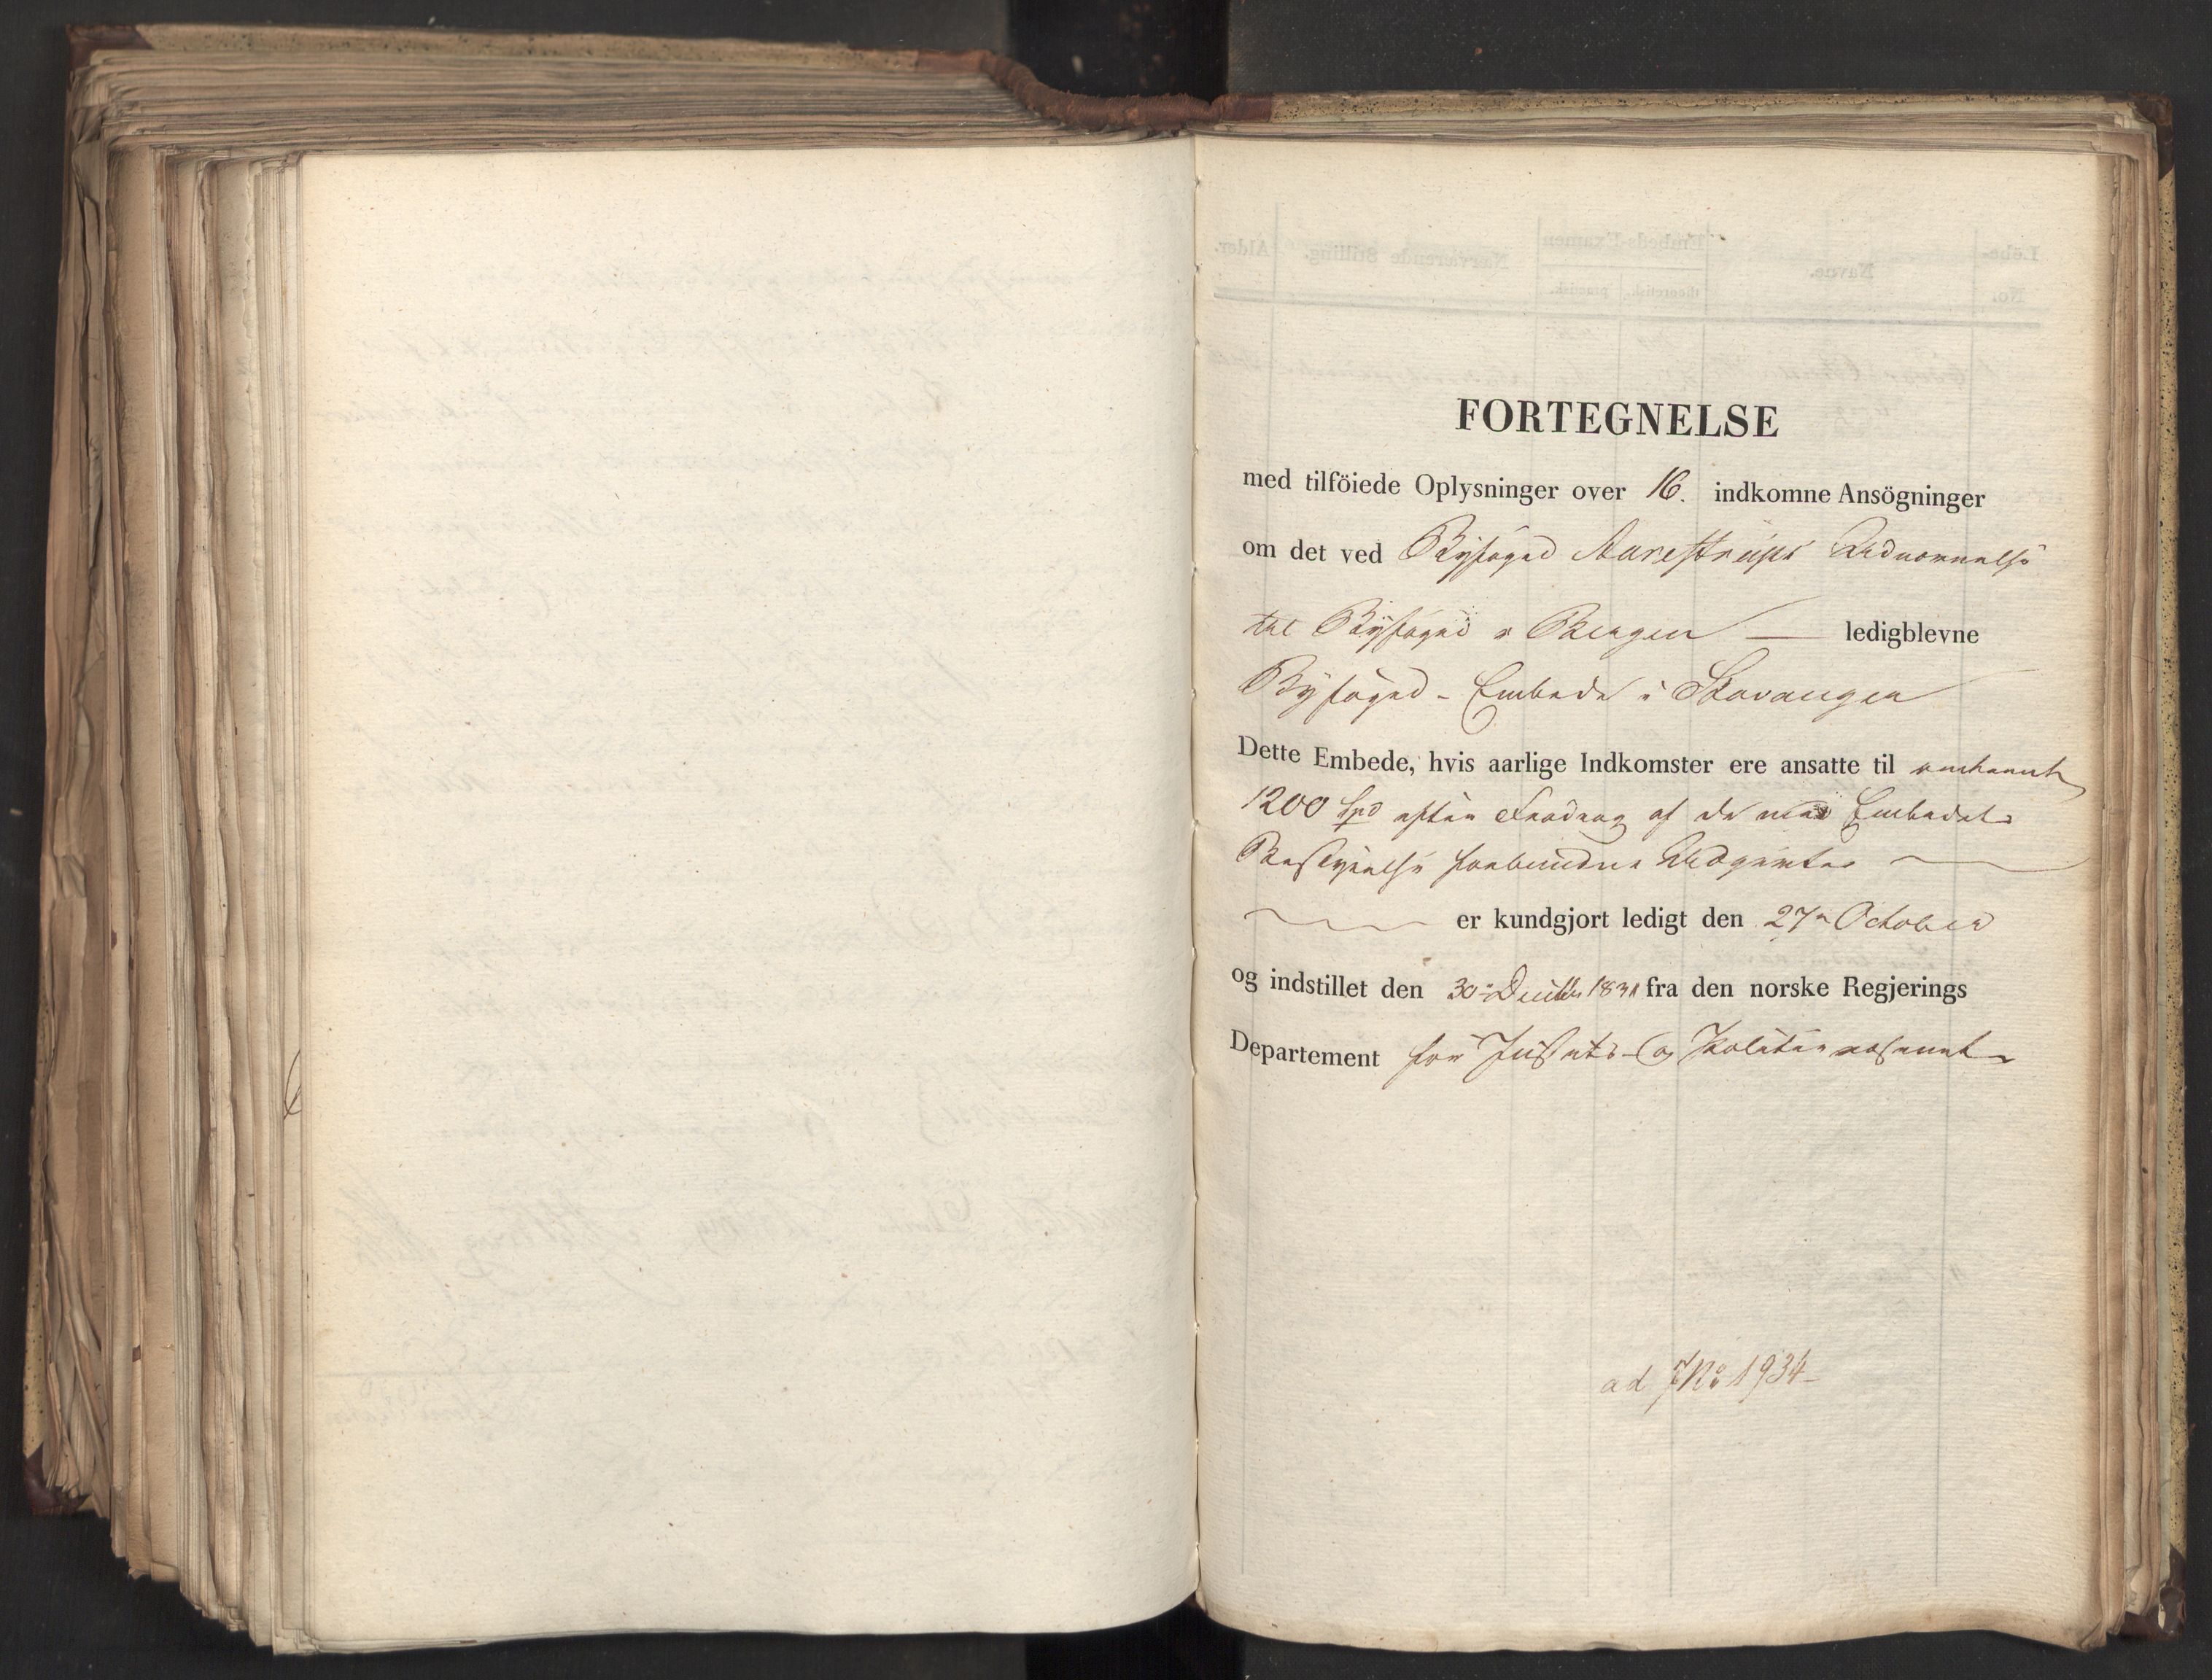 FORTEGNELSE
med tilföiede Oplysninger over 16. indkomne Ansögninger
om det ved Byfoged Aarestrups Udnævnelse
til Byfoged i Bergen — ledigblevne
Byfoged-Embede i Stavanger
Dette Embede, hvis aarlige Indkomster ere ansatte til omtrent
1200 Spd efter Fradrag af de med Embedets
Bestyrelse forbundne Udgivter
er kundgjort ledigt den 27de October
og indstillet den 30te Decbr 1831 fra den norske Regjerings
Departement for Justits- og Politievæsenet
ad JNo 1934